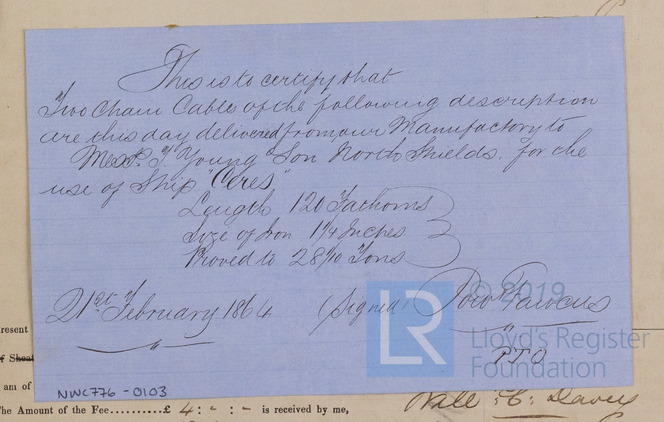 This is to certify that
Two Chain Cables of the following description
are this day delivered from our Manufactory to
Messrs. T. Young & Son North Shields. for the
use of Ship "Ceres"
Length 120 Fathoms
Size of Iron 1 1/4 Inches
Proved to 28 1/10 Tons
21st February 1864 (Signed) Fawcus
PTO
© 2019
LR
Lloyd's Register
Foundation
resent
f Sheat
am of
NWC776 - 0103
he Amount of the Fee..........£ 4 : - : - is received by me,